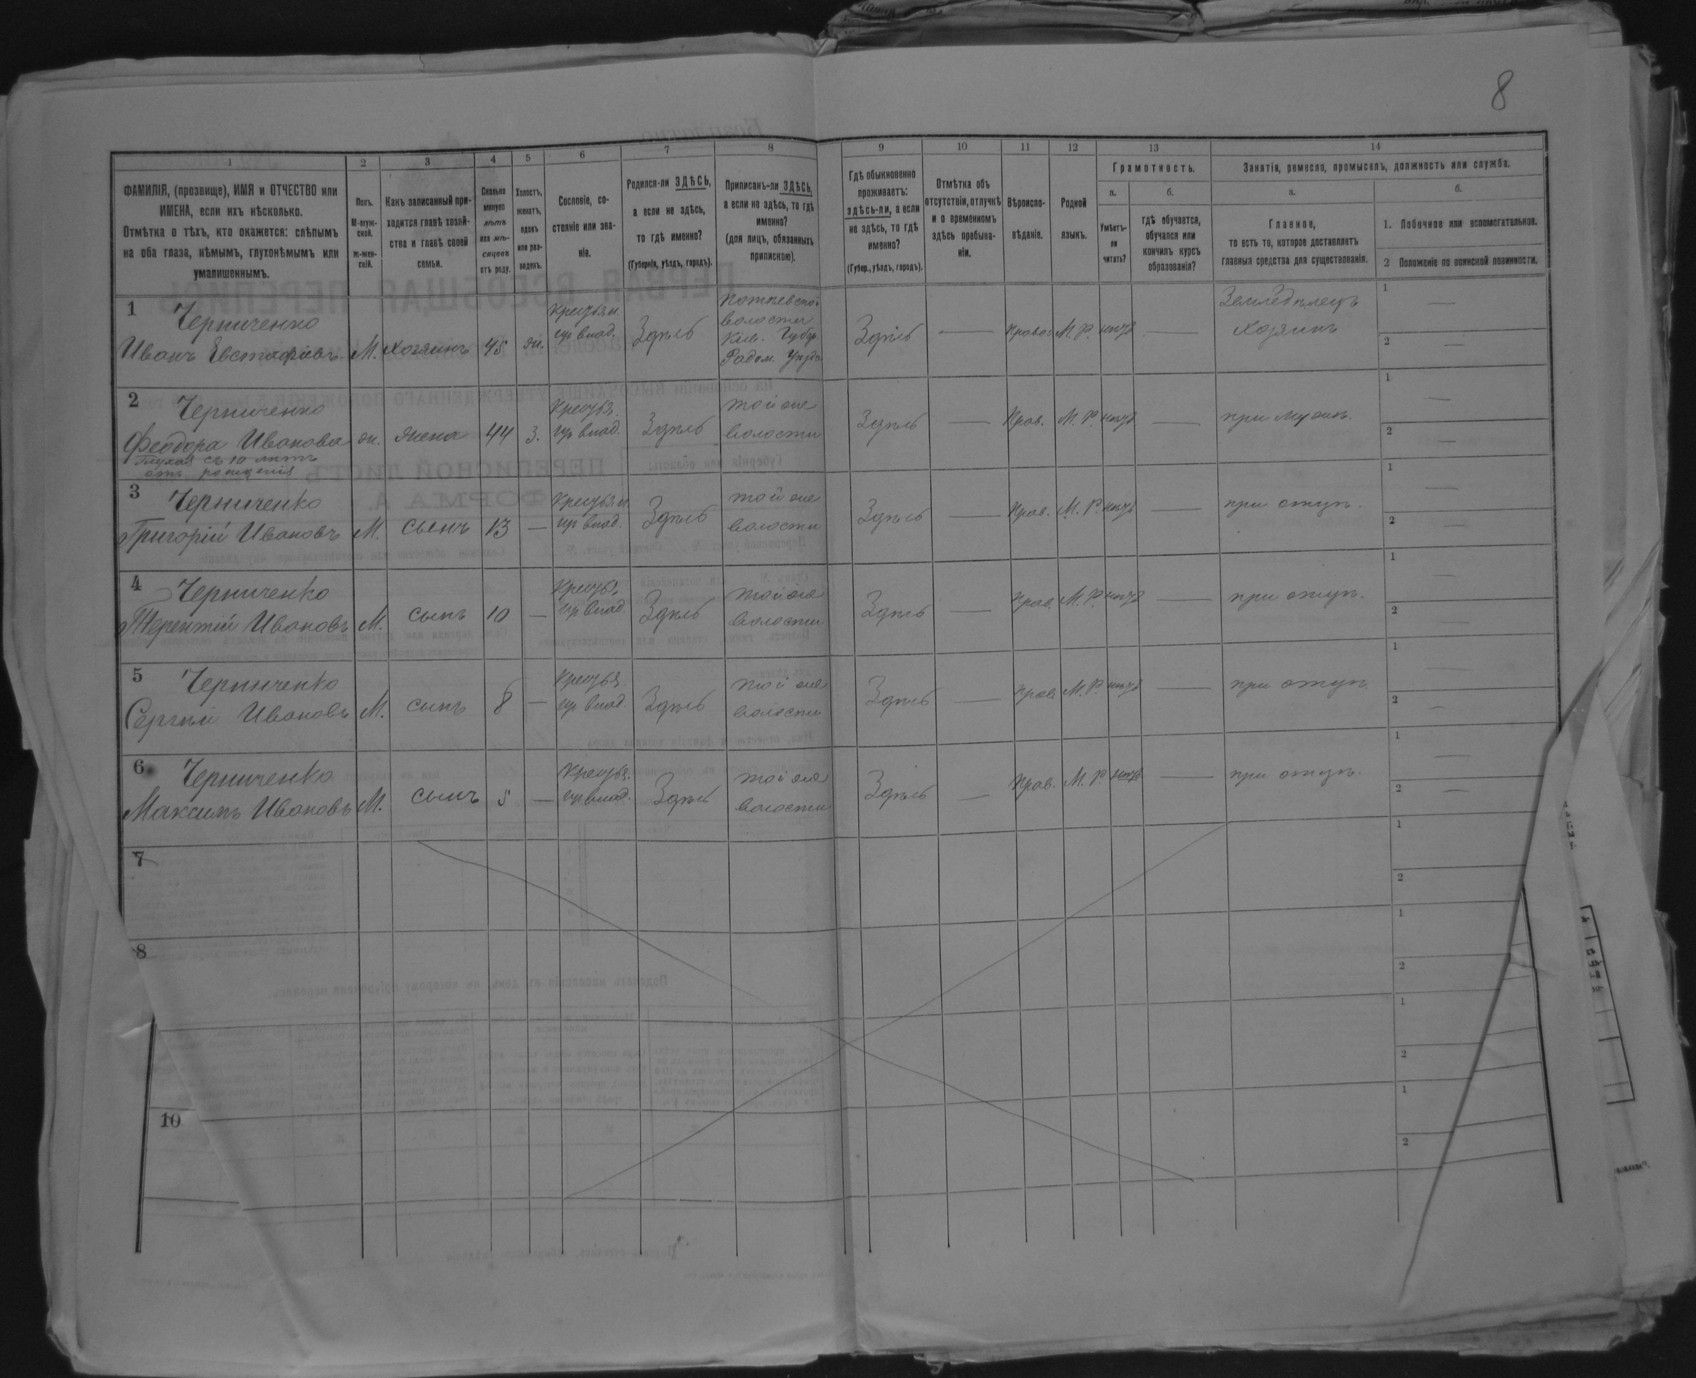 8
1 2 3 4 5 6 7 8 9 10 11 12 13 14
ФАМИЛІЯ, (прозвище), ИМЯ и ОТЧЕСТВО или ИМЕНА, если ихъ нѣсколько.
Отмѣтка о тѣхъ, кто окажется: слѣпымъ на оба глаза, нѣмымъ, глухонѣмымъ или умалишеннымъ.
Полъ. М-мужской. Ж-женскій.
Какъ записанный приходится главѣ хозяйства и главѣ своей семьи.
Сколько минуло лѣтъ или мѣсяцевъ отъ роду.
Холостъ, женатъ, вдовъ или разведенъ.
Сословіе, состояніе или званіе.
Родился-ли ЗДѢСЬ, а если не здѣсь, то гдѣ именно?
(Губернія, уѣздъ, городъ).
Приписанъ-ли ЗДѢСЬ, а если не здѣсь, то гдѣ именно?
(для лицъ, обязанныхъ припискою).
Гдѣ обыкновенно проживаетъ: здѣсь-ли, а если не здѣсь, то гдѣ именно?
(Губер., уѣздъ, городъ).
Отмѣтка объ отсутствіи, отлучкѣ и о временномъ здѣсь пребываніи.
Вѣроисповѣданіе.
Родной языкъ.
Грамотность.
а. Умѣетъ-ли читать?
б. гдѣ обучается, обучался или кончилъ курсъ образованія?
Занятіе, ремесло, промыселъ, должность или служба.
а. Главное, то есть то, которое доставляетъ главныя средства для существованія.
б.
1. Побочное или вспомогательное.
2 Положеніе по воинской повинности.
1 Черниченко
Иванъ Евстафіевъ М. хозяинъ 45 ж. Крестьян. Здѣсь волости Кіев. Губер. Радом. Уѣзда Здѣсь — Правос. М. Р. нѣтъ — Земледѣлецъ хозяинъ 1 — 2 —
2 Черниченко
Феодора Иванова ж. жена 44 з. Здѣсь той же волости Здѣсь — Прав. М. Р. нѣтъ — при мужѣ. 1 — 2 —
глухая съ 10 лѣтъ
отъ рожденія
3 Черниченко
Григорій Ивановъ М. сынъ 13 — Крестьян. Здѣсь той же волости Здѣсь — Прав. М. Р. нѣтъ — при отцѣ. 1 — 2 —
4 Черниченко
Терентій Ивановъ М. сынъ 10 — Здѣсь той же волости Здѣсь — Прав. М. Р. нѣтъ — при отцѣ. 1 — 2 —
5 Черниченко
Сергѣй Ивановъ М. сынъ 8 — Здѣсь той же волости Здѣсь — Прав. М. Р. нѣтъ — при отцѣ 1 — 2 —
6 Черниченко
Максимъ Ивановъ М. сынъ 5 — Здѣсь той же волости Здѣсь — Прав. М. Р. нѣтъ — при отцѣ. 1 — 2 —
7 1 2
8 1 2
1 2
10 1 2